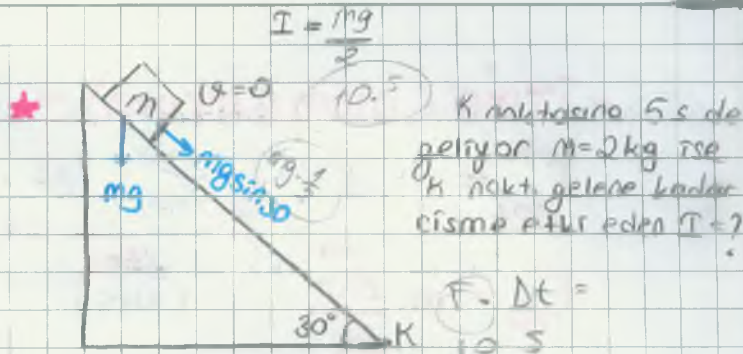 I = mg/2
m
υ=0
10.5
mg
mgsin30
mg.1/2
30°
K
K noktasına 5 s de
geliyor m=2kg ise
K nokt. gelene kadar
cisme etki eden I=?
F. Δt =
10 5